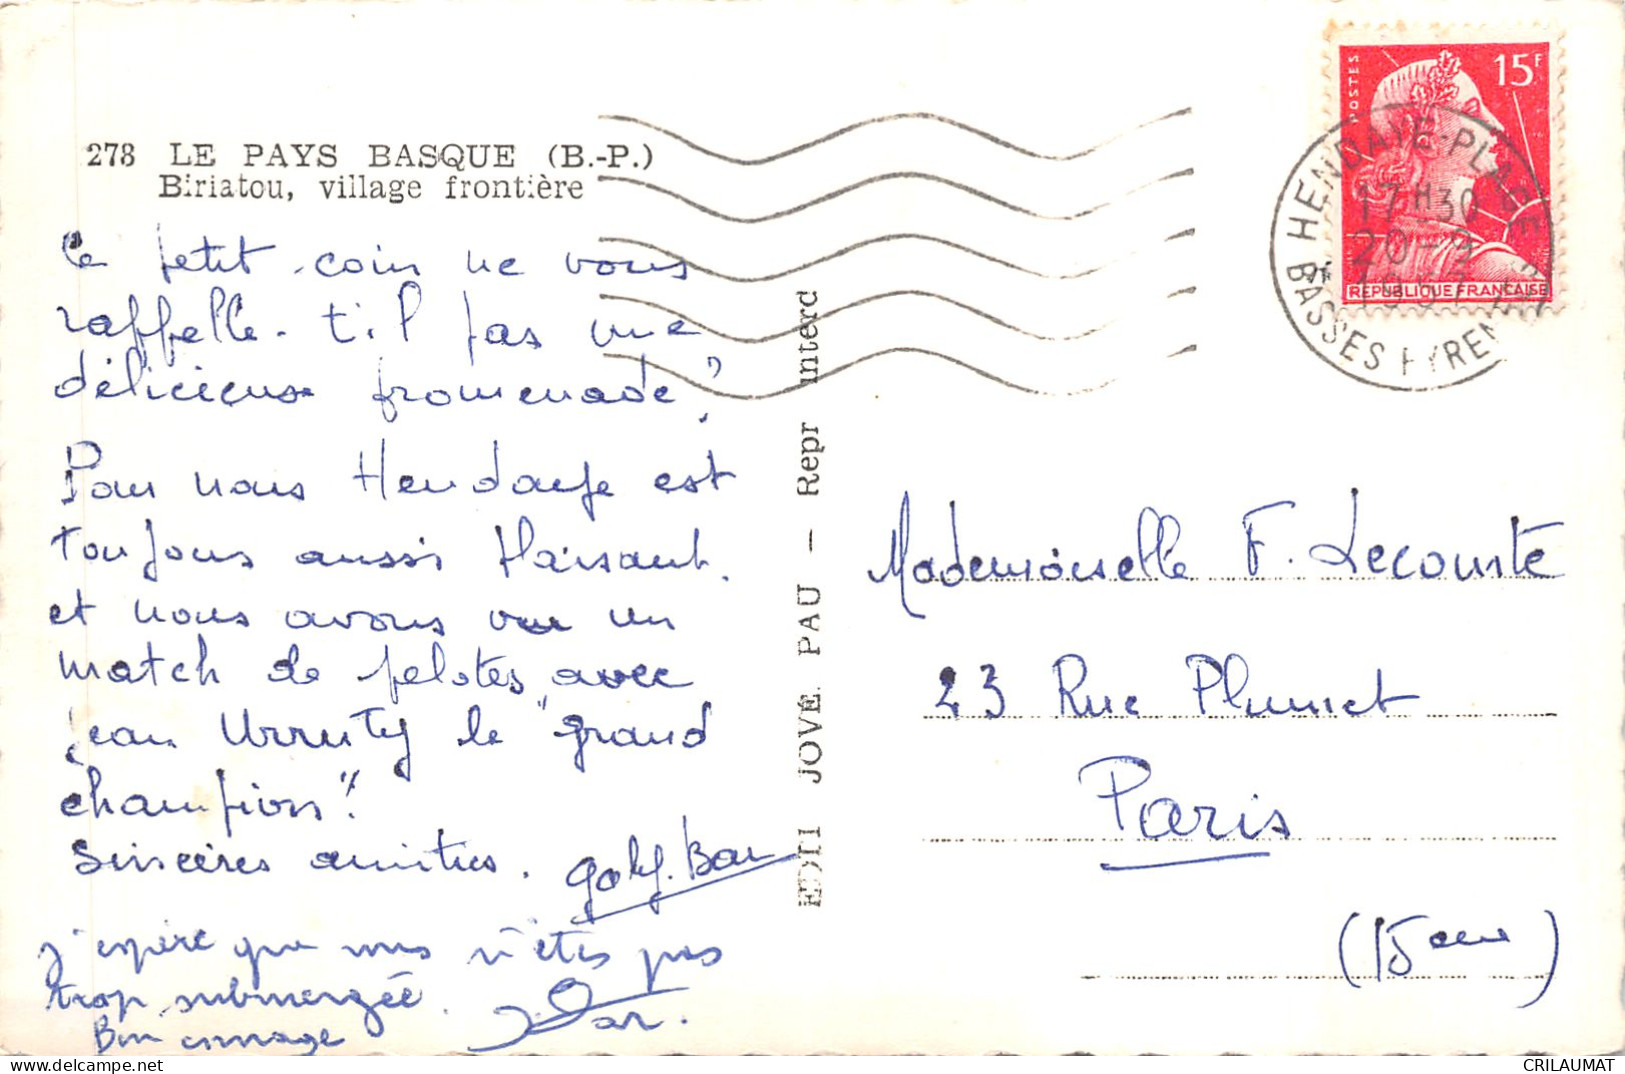 278 LE PAYS BASQUE (B.-P.)
Biriatou, village frontière
Ce petit coin ne vous
rappelle-t'il pas une
délicieuse promenade?
Pour nous Hendaye est
toujours aussi plaisant.
et nous avons vu un
match de pelotes avec
jean Urruty le "grand
champion".
Sincères amitiés.
j'espère que vous n'êtes pas
trop submergée.
Bon
EDIT JOVE PAU — Repr interd
POSTES
15F
REPUBLIQUE FRANÇAISE
HENDAYE-PLAGE
17H30
20-9
1957
BASSES PYRENEES
Mademoiselle F. Lecomte
23 Rue Plumet
Paris
(15eme)
CRILAUMAT